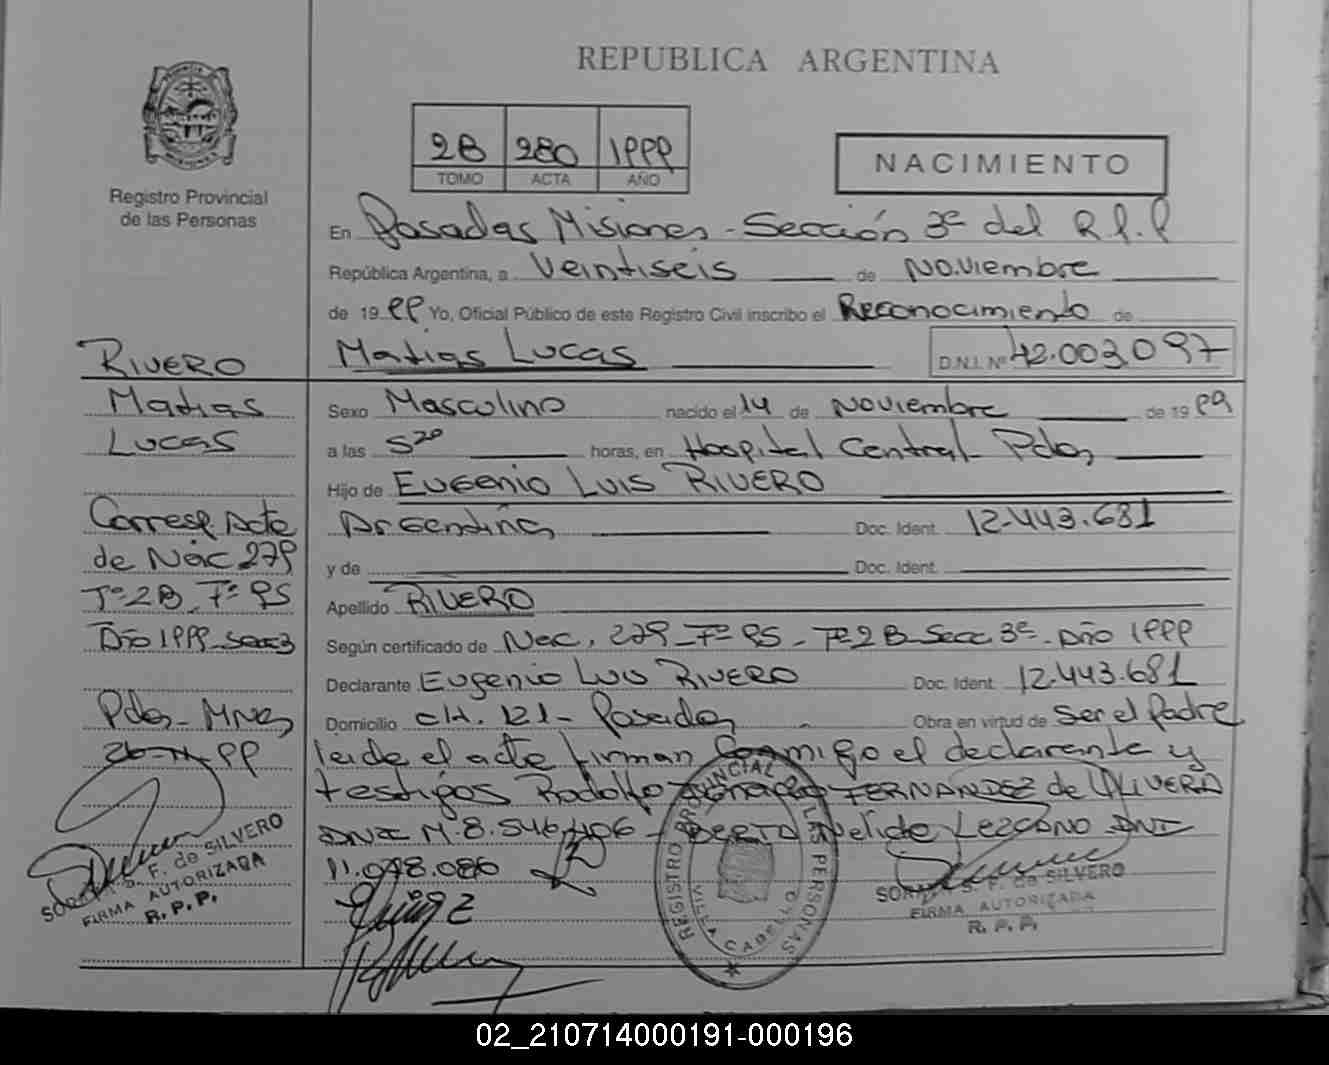 REPUBLICA ARGENTINA
2B 280 1999
TOMO ACTA AÑO
NACIMIENTO
Registro Provincial
de las Personas
En Posadas Misiones - Sección 3ª del R.P.P
República Argentina, a Veintiseis de Noviembre
de 1999 Yo, Oficial Público de este Registro Civil inscribo el Reconocimiento de
Matias Lucas D.N.I. Nº 42.003.097
Sexo Masculino nacido el 14 de Noviembre de 1999
a las 5²⁰ horas, en Hospital Central - Pdas
Hijo de Eugenio Luis RIVERO
Argentina Doc. Ident. 12.443.681
y de Doc. Ident.
Apellido RIVERO
Según certificado de Nac. 279 - Fº 95 - Tº 2B - Secc 3ª - Año 1999
Declarante Eugenio Luis RIVERO Doc. Ident. 12.443.681
Domicilio CH. 121 - Posadas Obra en virtud de Ser el Padre
leida el acta firman conmigo el declarante y
testigos Rodolfo FERNANDEZ de OLIVERA
DNI M. 8.546.406 - BERTA Nelida LEZCANO DNI
11.078.086
RIVERO
Matias
Lucas
Corresp. Acta
de Nac 279
Tº 2B Fº 95
Año 1999 - Secc 3
Pdas - Mnes
26-11-99
S. F. de SILVERO
FIRMA AUTORIZADA
R. P. P.
REGISTRO PROVINCIAL DE LAS PERSONAS
S. F. de SILVERO
FIRMA AUTORIZADA
R. P. P.
02_210714000191-000196